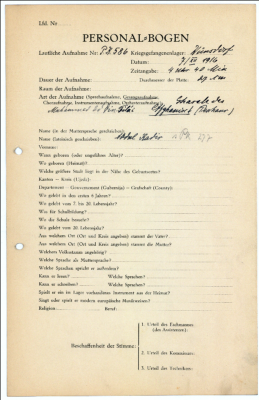 Lfd. Nr.
PERSONAL-BOGEN
Lautliche Aufnahme Nr: PK 586 Kriegsgefangenenlager:
Datum:
Zeitangabe: 4 Uhr 40 Min
Dauer der Aufnahme: Durchmesser der Platte:
Raum der Aufnahme:
Art der Aufnahme (Sprechaufnahme, Gesangsaufnahme
Choraufnahme, Instrumentenaufnahme, Orchesteraufnahme):
Name (in der Muttersprache geschrieben):
Name (lateinisch geschrieben): Abdul Kadir
Vorname:
Wann geboren (oder ungefähres Alter)?
Wo geboren (Heimat)?
Welche größere Stadt liegt in der Nähe des Geburtsortes?
Kanton — Kreis (Ujezd):
Department — Gouvernement (Gubernija) — Grafschaft (County):
Wo gelebt in den ersten 6 Jahren?
Wo gelebt vom 7. bis 20. Lebensjahr?
Was für Schulbildung?
Wo die Schule besucht?
Wo gelebt vom 20. Lebensjahr?
Aus welchem Ort (Ort und Kreis angeben) stammt der Vater?
Aus welchem Ort (Ort und Kreis angeben) stammt die Mutter?
Welchem Volksstamm angehörig?
Welche Sprache als Muttersprache?
Welche Sprachen spricht er außerdem?
Kann er lesen? Welche Sprachen?
Kann er schreiben? Welche Sprachen?
Spielt er ein im Lager vorhandenes Instrument aus der Heimat?
Singt oder spielt er modern europäische Musikweisen?
Religion: Beruf:
Beschaffenheit der Stimme:
1. Urteil des Fachmannes
(des Assistenten):
2. Urteil des Kommissars:
3. Urteil des